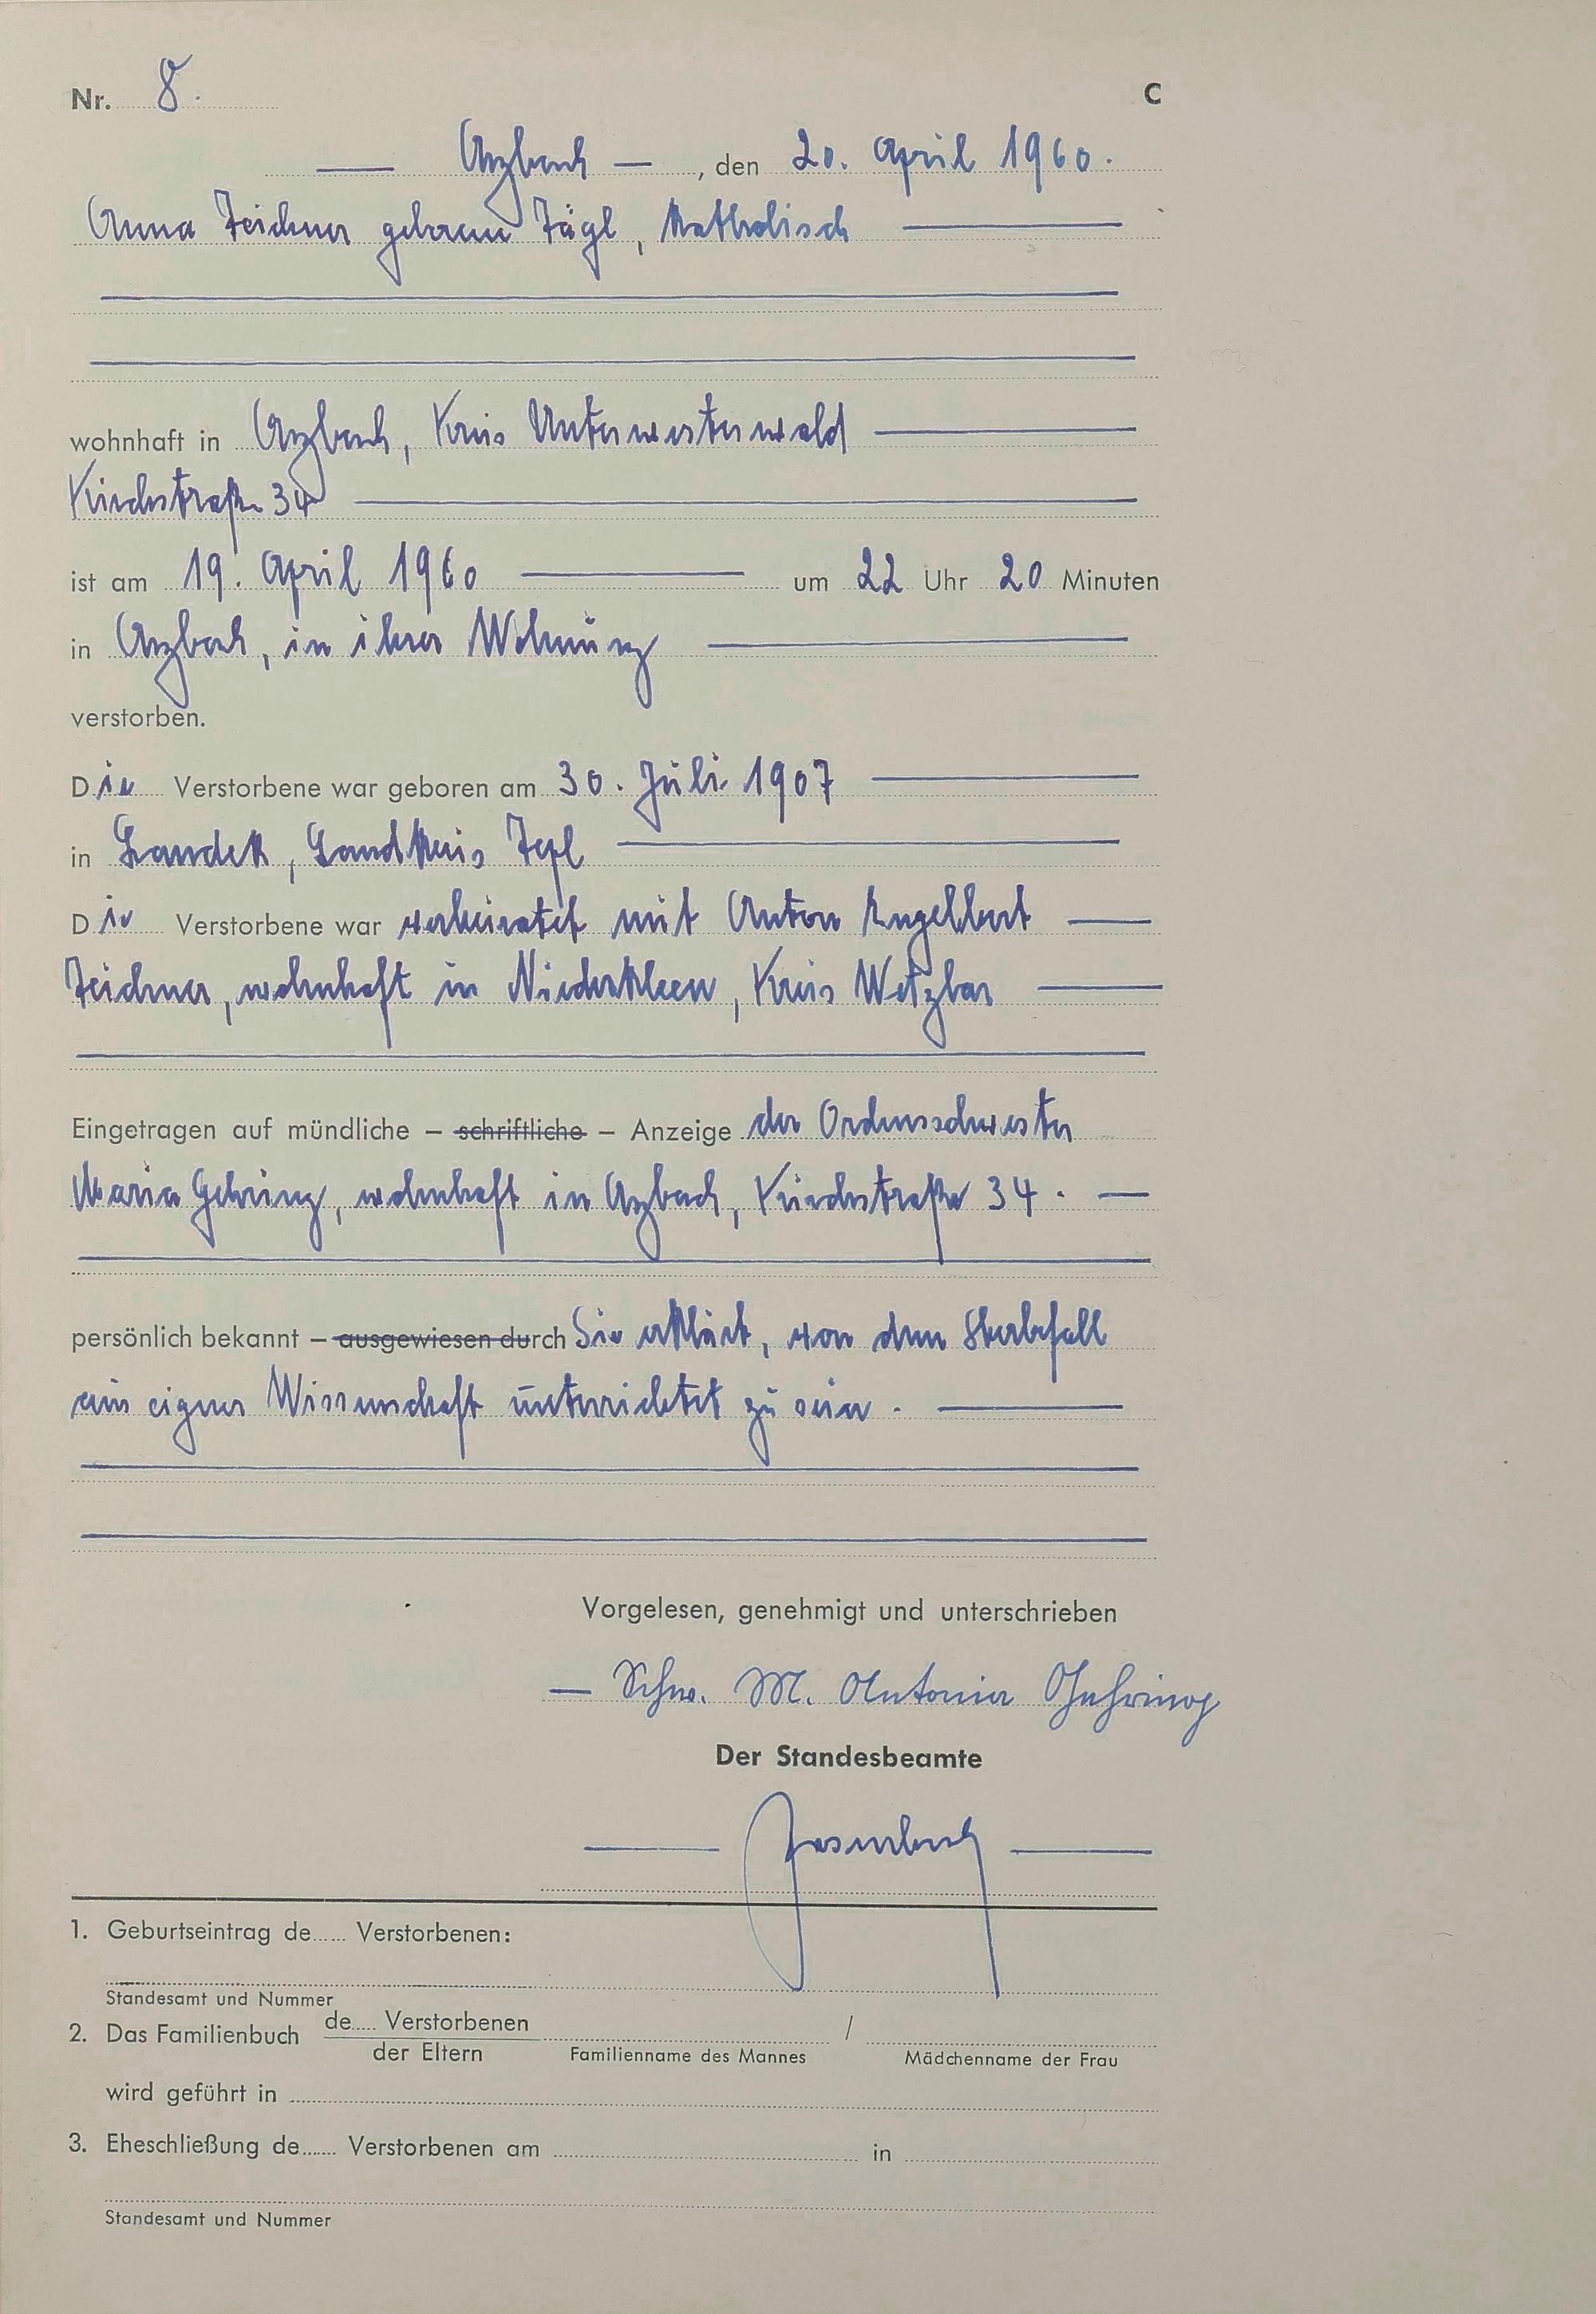 Nr. 8. C
— Arzbach —, den 20. April 1960.
Anna Teichner geborene Tägl, Katholisch —
wohnhaft in Arzbach, Kreis Unterwesterwald —
Kirchstraße 34 —
ist am 19. April 1960 — um 22 Uhr 20 Minuten
in Arzbach, in ihrer Wohnung —
verstorben.
Die Verstorbene war geboren am 30. Juli 1907 —
in Landek, Landkreis Tepl —
Die Verstorbene war verheiratet mit Anton Engelbert —
Teichner, wohnhaft in Niederkleen, Kreis Wetzlar —
Eingetragen auf mündliche – schriftliche – Anzeige der Ordensschwester
Maria Gehring, wohnhaft in Arzbach, Kirchstraße 34. —
persönlich bekannt – ausgewiesen durch Sie erklärt, von dem Sterbefall
aus eigner Wissenschaft unterrichtet zu sein. —
Vorgelesen, genehmigt und unterschrieben
— Schw. M. Antonia Gehring
Der Standesbeamte
1. Geburtseintrag de...... Verstorbenen:
Standesamt und Nummer
2. Das Familienbuch de..... Verstorbenen /
der Eltern Familienname des Mannes Mädchenname der Frau
wird geführt in
3. Eheschließung de...... Verstorbenen am in
Standesamt und Nummer